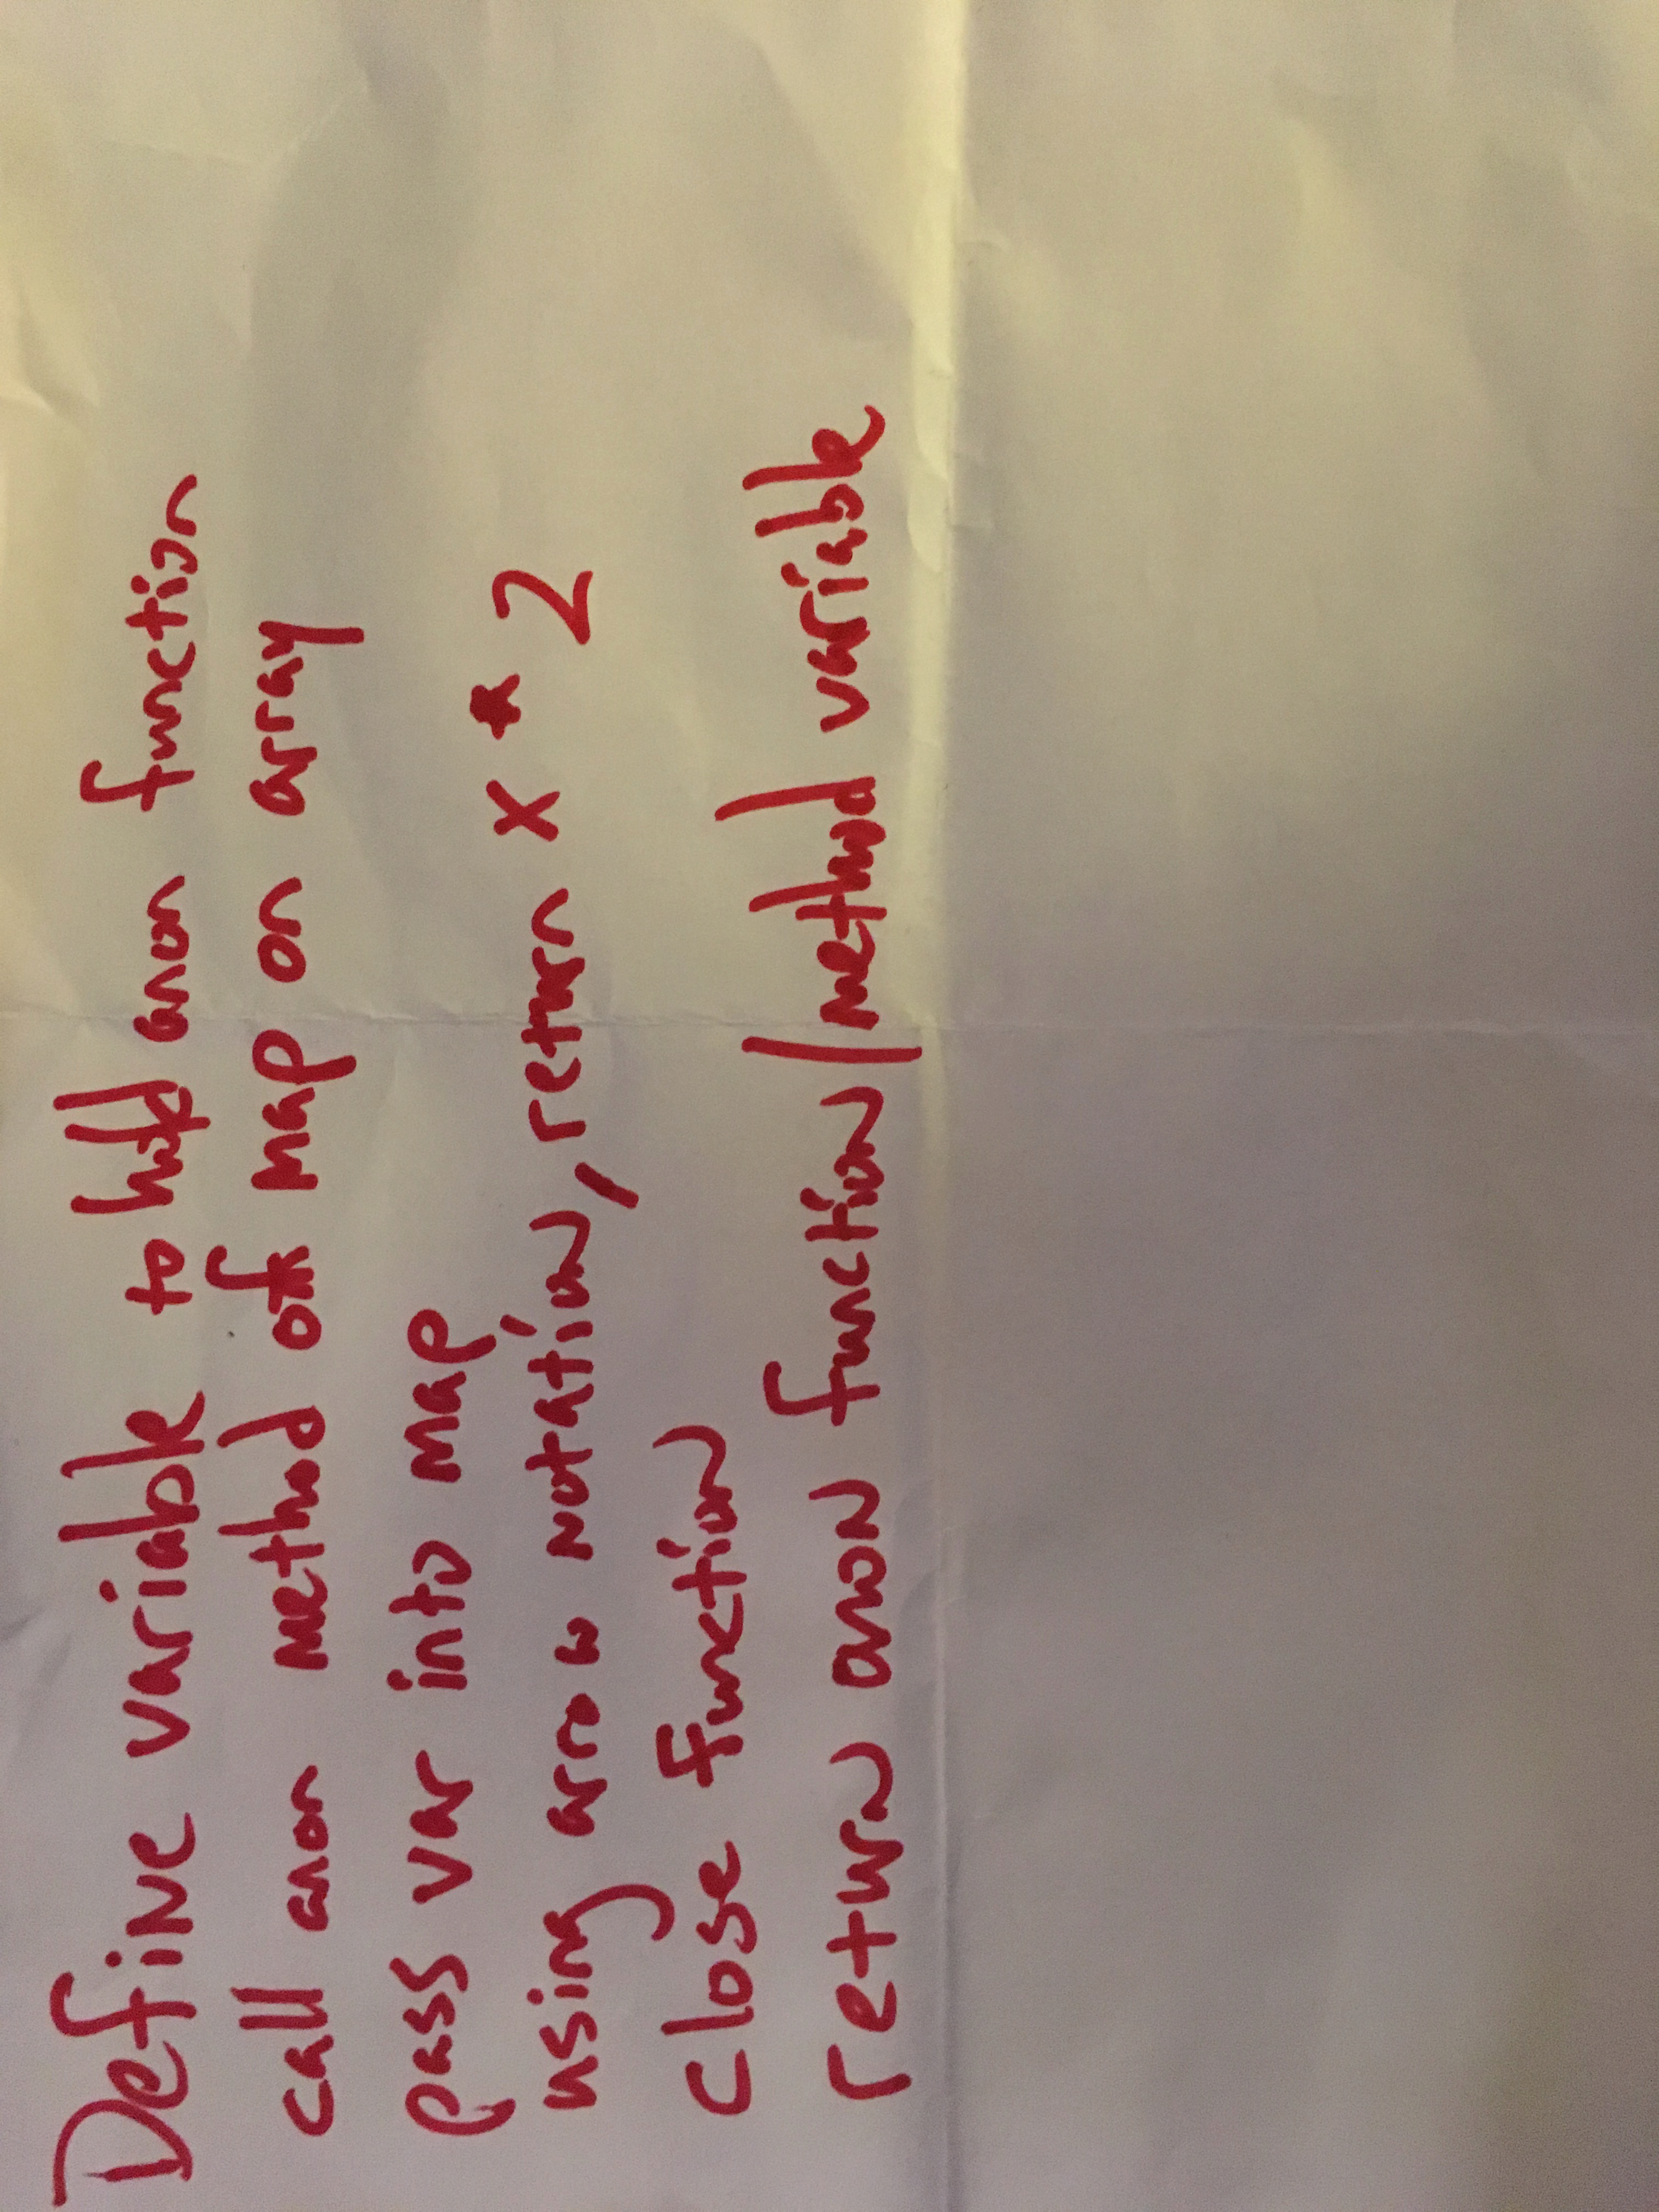 Define variable to hold anon function
call anon method of map on array
pass var into map
using arrow notation, return x * 2
close function
return anon function/method variable